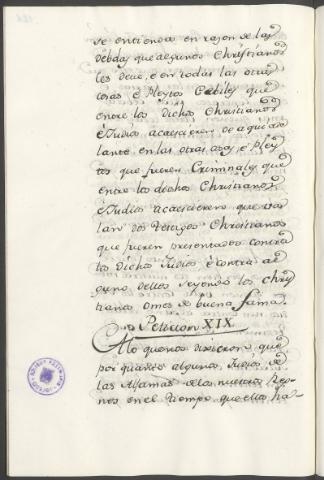 se entienda en razon de las
debdas que algunos Christianos
les deve, è en todas las otras
cosas è Pleytos Cebiles que
entre los dichos Christianos
è Judios acaescieren de aqui ade
lante en las otras cosas è Pley
tos que fueren Criminales que
entre los dichos Christianos
è Judios acaecieren que va
lan dos Testigos Christianos
que fueren presentados contra
los dichos Judios è contra al
guno dellos seyendo los chris
tianos omes de buena fama.
Peticion XIX.
A lo que nos dixieron que
por quanto algunos Judios de
las Aljamas de los nuestros Rey-
nos en el tiempo que ellos ha-